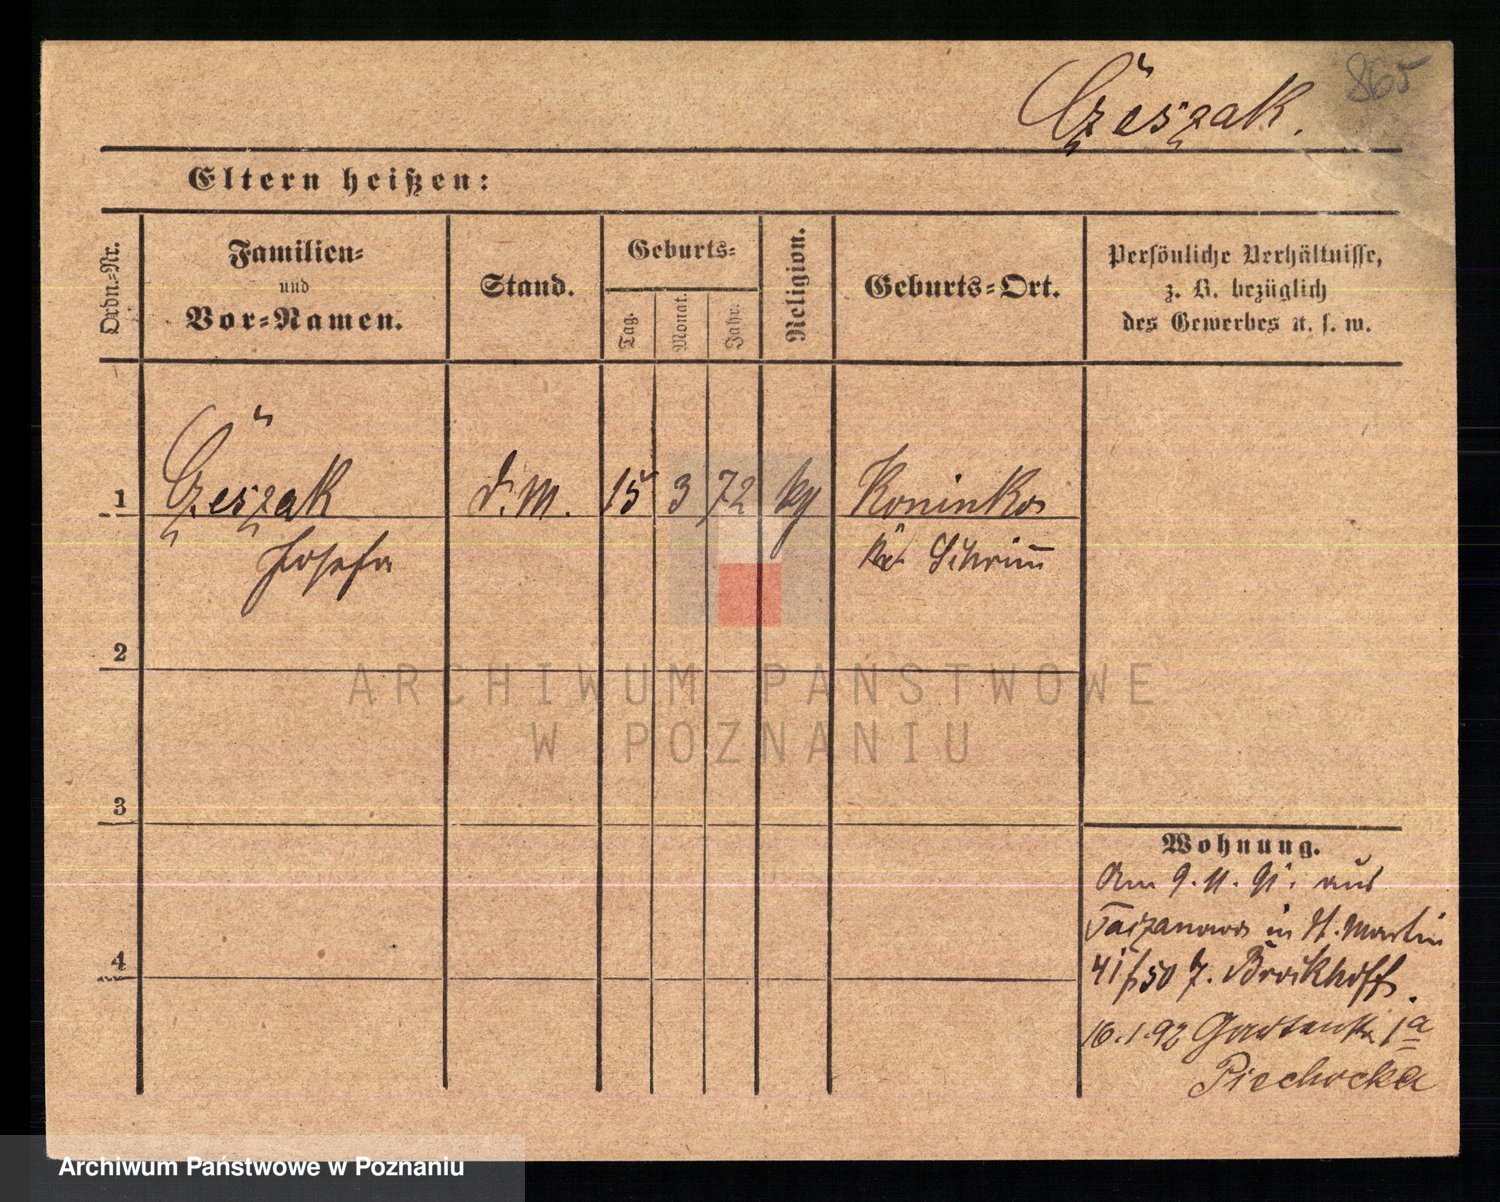 865
Czeszak.
Eltern heißen:
Ordn.=Nr.
Familien=
und
Vor=Namen.
Stand.
Geburts=
Tag.
Monat.
Jahr.
Religion.
Geburts=Ort.
Persönliche Verhältnisse,
z. B. bezüglich
des Gewerbes u. s. w.
1 Czeszak d. M. 15 3 72 Koninko
Josefa Schrim̅
2
3
4
Wohnung.
Am 9. 11. 91. aus
in St. Martin
Brockhoff.
16.1.92 Gartenstr 1a
Piechocka
ARCHIWUM PAŃSTWOWE
W POZNANIU
Archiwum Państwowe w Poznaniu